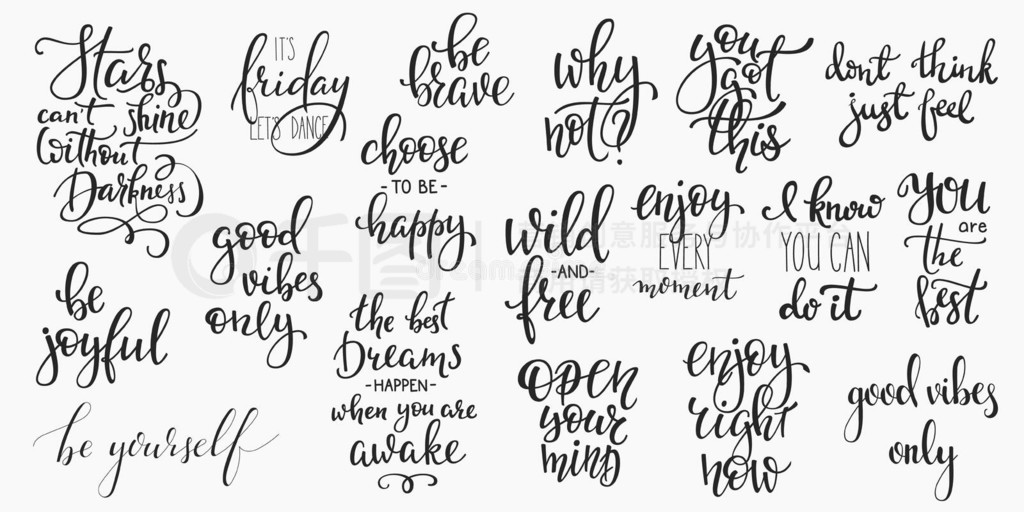 Stars
can't shine
Without
Darkness
IT'S
friday
LET'S DANCE
be
brave
why
not?
you
got
this
dont think
just feel
choose
- TO BE -
happy
good
vibes
only
wild
-AND-
free
enjoy
EVERY
moment
I know
YOU CAN
do it
you
are
the
best
be
joyful
the best
Dreams
- HAPPEN -
when you are
awake
open
your
mind
enjoy
right
now
good vibes
only
be yourself